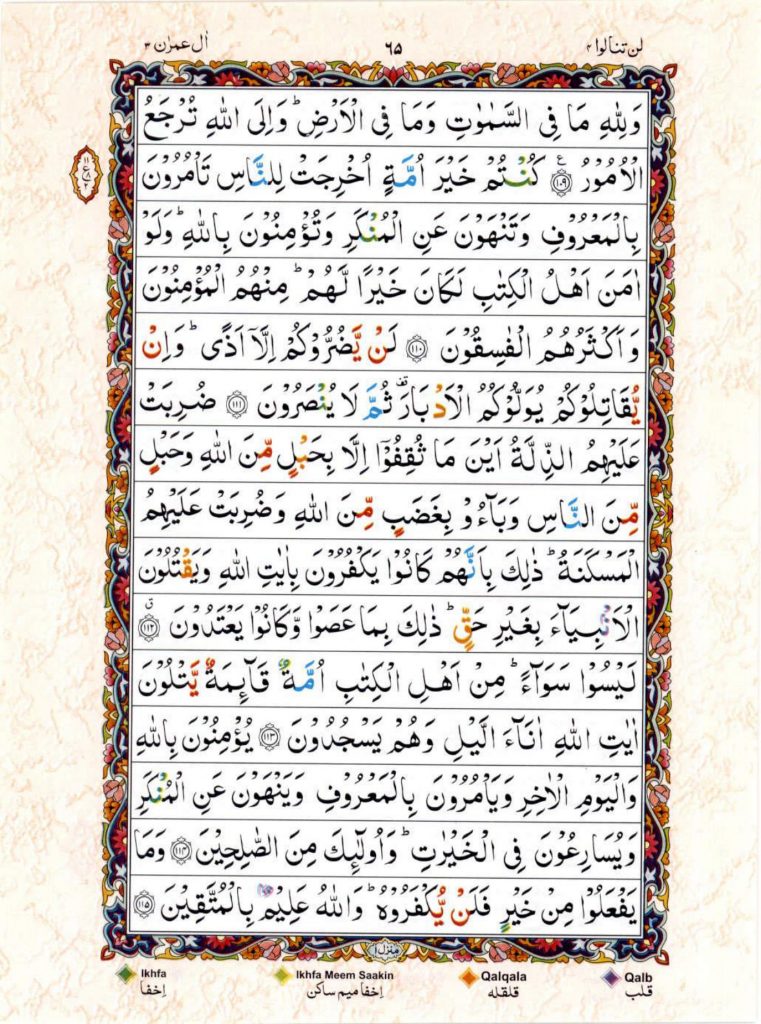 لن تنالوا ۴
٦٥
اٰل عمرٰن ۳
وَلِلّٰهِ مَا فِى السَّمٰوٰتِ وَمَا فِى الْاَرْضِ ؕ وَاِلَى اللّٰهِ تُرْجَعُ
الْاُمُوْرُ ۧ ﴿۱۰۹﴾ كُنْتُمْ خَيْرَ اُمَّةٍ اُخْرِجَتْ لِلنَّاسِ تَاْمُرُوْنَ
بِالْمَعْرُوْفِ وَتَنْهَوْنَ عَنِ الْمُنْكَرِ وَتُؤْمِنُوْنَ بِاللّٰهِ ؕ وَلَوْ
اٰمَنَ اَهْلُ الْكِتٰبِ لَكَانَ خَيْرًا لَّهُمْ ؕ مِنْهُمُ الْمُؤْمِنُوْنَ
وَاَكْثَرُهُمُ الْفٰسِقُوْنَ ﴿۱۱۰﴾ لَنْ يَّضُرُّوْكُمْ اِلَّاۤ اَذًى ؕ وَاِنْ
يُّقَاتِلُوْكُمْ يُوَلُّوْكُمُ الْاَدْبَارَ ۟ ثُمَّ لَا يُنْصَرُوْنَ ﴿۱۱۱﴾ ضُرِبَتْ
عَلَيْهِمُ الذِّلَّةُ اَيْنَ مَا ثُقِفُوْۤا اِلَّا بِحَبْلٍ مِّنَ اللّٰهِ وَحَبْلٍ
مِّنَ النَّاسِ وَبَآءُوْ بِغَضَبٍ مِّنَ اللّٰهِ وَضُرِبَتْ عَلَيْهِمُ
الْمَسْكَنَةُ ؕ ذٰلِكَ بِاَنَّهُمْ كَانُوْا يَكْفُرُوْنَ بِاٰيٰتِ اللّٰهِ وَيَقْتُلُوْنَ
الْاَنْۢبِيَآءَ بِغَيْرِ حَقٍّ ؕ ذٰلِكَ بِمَا عَصَوْا وَّكَانُوْا يَعْتَدُوْنَ ﴿۱۱۲﴾ ق
لَيْسُوْا سَوَآءً ؕ مِنْ اَهْلِ الْكِتٰبِ اُمَّةٌ قَآئِمَةٌ يَّتْلُوْنَ
اٰيٰتِ اللّٰهِ اٰنَآءَ الَّيْلِ وَهُمْ يَسْجُدُوْنَ ﴿۱۱۳﴾ يُؤْمِنُوْنَ بِاللّٰهِ
وَالْيَوْمِ الْاٰخِرِ وَيَاْمُرُوْنَ بِالْمَعْرُوْفِ وَيَنْهَوْنَ عَنِ الْمُنْكَرِ
وَيُسَارِعُوْنَ فِى الْخَيْرٰتِ ؕ وَاُولٰٓئِكَ مِنَ الصّٰلِحِيْنَ ﴿۱۱۴﴾ وَمَا
يَفْعَلُوْا مِنْ خَيْرٍ فَلَنْ يُّكْفَرُوْهُ ؕ وَاللّٰهُ عَلِيْمٌۢ بِالْمُتَّقِيْنَ ﴿۱۱۵﴾
۱۱
ع ۸
۲
منزل ۱
Ikhfa
اِخفا
Ikhfa Meem Saakin
اِخفا میم ساکن
Qalqala
قلقله
Qalb
قلب